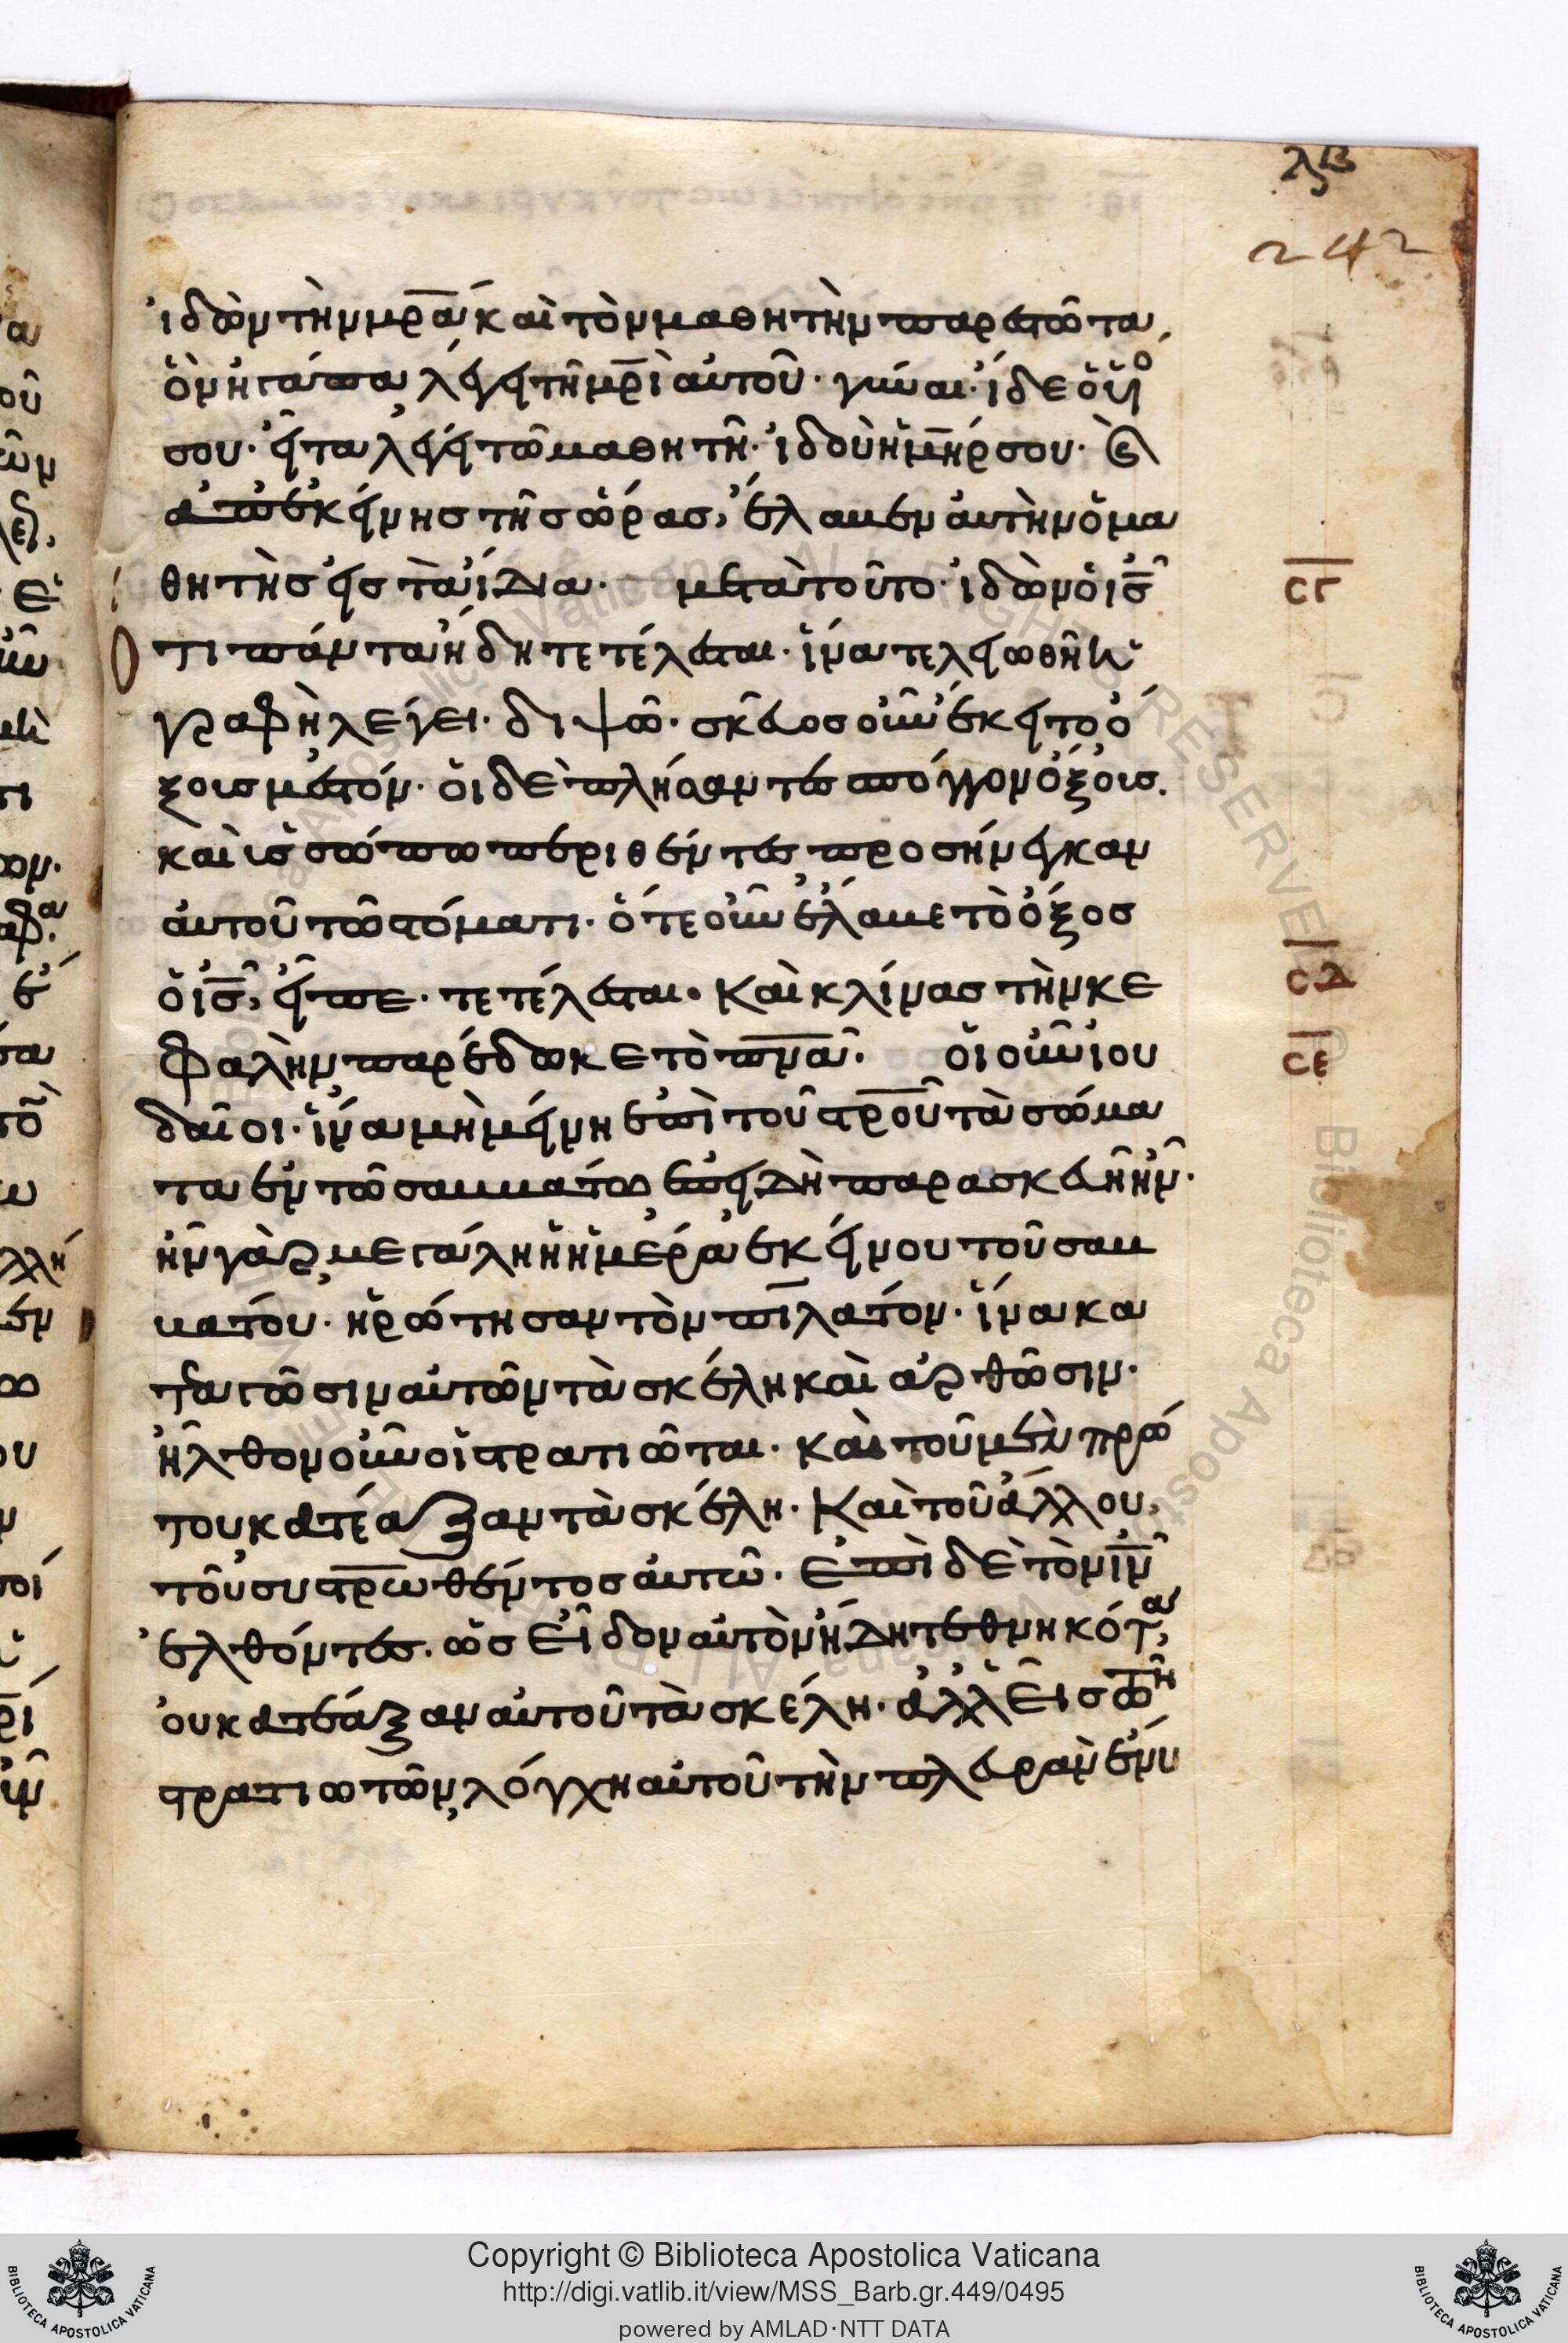 λβ
242
ἰδὼν τὴν μρ̅α καὶ τὸν μαθητὴν παρεστῶτα,
ὃν ἠγάπα, λέγει τῆ μρ̅ὶ αὐτοῦ· γύναι· ἴδε ὁ υἱό
σου· εἶτα λέγει τῶ μαθητῆ· ἰδοὺ ἡ μη̅ρ σου· καὶ
ἀπ' ἐκείνης τῆς ὥρας, ἔλαβεν αὐτὴν ὁ μα
θητὴς εἰς τὰ ἴδια· μετὰ τοῦτο· ἰδὼν ὁ ις̅
τι πάντα ἤδη τετέλεσται· ἵνα τελειωθῆ ἡ
γραφὴ λέγει· διψῶ· σκεῦος οὖν ἔκειτο ὄ
ξους μεστόν· οἱ δὲ πλήσαντες σπόγγον ὄξους.
καὶ ὑσσώπω περιθέντες προσήνεγκαν
αὐτοῦ τῶ στόματι· ὅτε οὖν ἔλαβε τὸ ὄξος
ὁ ις̅, εἶπε· τετέλεσται· Καὶ κλίνας τὴν κε
φαλὴν παρέδωκε τὸ πν̅α· οἱ οὖν ἰου
δαῖοι· ἵνα μὴ μείνη ἐπὶ τοῦ στρ̅οῦ τὰ σώμα
τα ἐν τῶ σαββάτω ἐπειδὴ παρασκευὴ ἦν·
ἦν γὰρ μεγάλη ἡ ἡμέρα ἐκείνου τοῦ σαβ
βάτου· ἠρώτησαν τὸν πιλάτον· ἵνα κα
τεαγῶσιν αὐτῶν τὰ σκέλη καὶ ἀρθῶσιν·
ἦλθον οὖν οἱ στρατιῶται· καὶ τοῦ μὲν πρώ
του κατέαξαν τὰ σκέλη· Καὶ τοῦ ἄλλου,
τοῦ συστρ̅ωθέντος αὐτῶ· Ἐπὶ δὲ τὸν ιν̅
ἐλθόντες. ὡς εἶδον αὐτὸν ἤδη τεθνηκότα,
οὐ κατέαξαν αὐτοῦ τὰ σκέλη· ἀλλ' εἷς τῶν
στρατιωτῶν, λόγχη αὐτοῦ τὴν πλευρὰν ἔνυ
ϲγ
ϲδ
ϲε
Copyright © Biblioteca Apostolica Vaticana
http://digi.vatlib.it/view/MSS_Barb.gr.449/0495
powered by AMLAD·NTT DATA
BIBLIOTECA APOSTOLICA VATICANA
BIBLIOTECA APOSTOLICA VATICANA